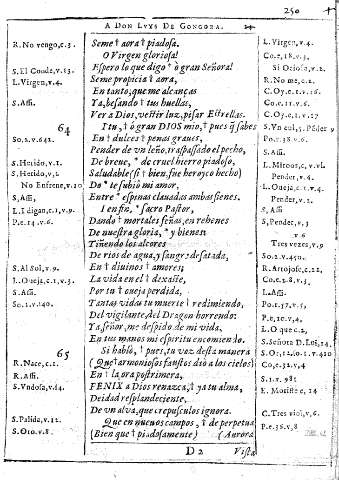 250
A DON LUYS DE GONGORA.
R. No vengo, c. 3.
S. El Conde, v. 13.
L. Virgen, v. 4.
S. Assi.
64
So. 2. v. 642.
S. Herido, v. 1.
S. Herido, v. 2
No Enfrene, v. 10
S. Assi.
L. I digan, c. 1, v. 9.
P. e. 14. v. 6.
S. Al sol, v. 9.
L. Oueja, c. 3. v. 1.
S. Assi.
So. 1. v. 140.
65
R. Nace, c. 1.
R. Assi.
S. Vndosa, v. 64.
S. Palida, v. 12.
S. Oro, v. 8.
Seme † aora † piadosa.
O Virgen gloriosa!
Espero lo que digo † ò gran Señora!
Seme propicia † aora,
En tanto, que me alcanças
Ya, besando † tus huellas,
Ver a Dios, vestir luz, pisar Estrellas.
I tu, † ò gran DIOS mio, † pues q̃ sabes
En † dulces † penas graues,
Pender de vn leño, traspassado el pecho,
De breue, * de cruel hierro piadoso,
Saludable (si † bien, fue heroyco hecho)
Do * te subiò mi amor,
Entre * espinas clauadas ambas sienes.
I en fin, * sacro Pastor,
Dando † mortales señas, en rehenes
De nuestra gloria, * y bienes:
Tiñendo los alcores
De rios de agua, y sangre desatada,
En † diuinos † amores;
La vida en el † dexaste,
Por tu † oueja perdida,
Tantas vidas tu muerte † redimiendo,
Del vigilante, del Dragon horrendo:
Ya, señor, me despido de mi vida,
En tus manos mi espiritu encomiendo.
Si hablò, † pues, tu voz desta manera
(Que † armoniosos faustos diò a los cielos)
En † la ora postrimera,
FENIX a Dios renazca, † ya tu alma,
Deidad resplandeciente.
De vn alua, que crepusculos ignora.
Que en nueuos campos, † de perpetua
(Bien que † piadosamente) (Aurora
D 2 Vista
L. Virgen, v. 4.
Co. e, 18. v. 3.
Si Ociosa, v. 2.
R. No me, c. 2.
C. Oy. e. 1. v. 16.
Co. e. 11. v. 6.
C. Oy. e. 1. v. 17
Po. r. 38. v. 6.
S. Assi.
Pender v. 4.
Pender, v. 4.
S. Assi
S. Pender, v. 3
v. 6
Tres vezes, v. 9
So. 2. v. 450.
Co. e. 8. v. 3.
L. Assi.
Po. r. 37. v. 5.
P. e, 10. v. 4.
L. O que c. 2,
Co, e. 32. v, 4
S. 1. v. 98.
C. Tres viol, v, 6.
P. e. 36. v, 8